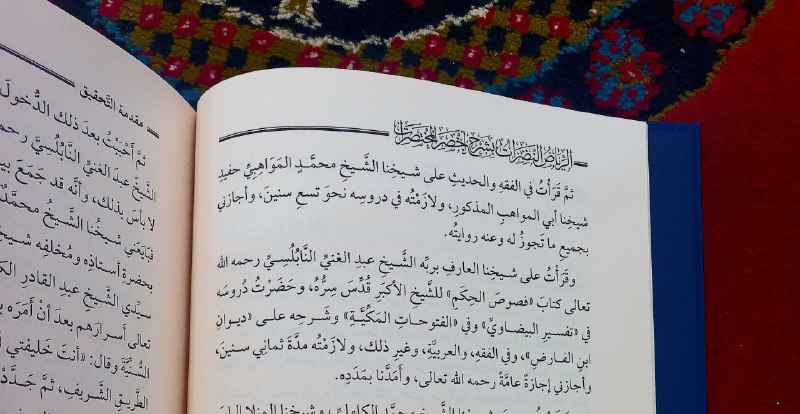 مقدمة التحقيق
ثمَّ أَحْبَبْتُ بعدَ ذلك الدُّخولَ
الشَّيخِ عبدِ الغنيِّ النَّابُلْسِيِّ رحمه
لا بأسَ بذلك، وأنَّه قد جَمَعَ بين
فبَايَعَني شيخُنا الشَّيخُ محمَّدٌ
بحضرةِ أستاذِه ومُخلِفِه شيخِنا
سيِّدي الشَّيخِ عبدِ القادرِ
تعالى أسرارَهم بعدَ أنْ أَمَرَه
السُّنِّيَّةَ وقال: «أنتَ خَليفتي
الطَّريقِ الشَّريفِ، ثمَّ جَدَّدْ
الرِّيَاضُ النَّضِرَاتُ بِشَرْحِ أَخْصَرِ المُخْتَصَرَاتِ
ثمَّ قَرَأْتُ في الفقهِ والحديثِ على شيخِنا الشَّيخِ محمَّدٍ المَوَاهِبيِّ حفيدِ
شيخِنا أبي المواهبِ المذكورِ، ولازَمْتُه في دروسِه نحوَ تسعِ سنينَ، وأجازني
بجميعِ ما تَجوزُ له وعنه روايتُه.
وقَرَأْتُ على شيخِنا العارفِ بربِّه الشَّيخِ عبدِ الغنيِّ النَّابُلْسِيِّ رحمه الله
تعالى كتابَ «فصوصِ الحِكَمِ» للشَّيخِ الأكبَرِ قُدِّسَ سِرُّهُ، وحَضَرْتُ دُروسَه
في «تفسيرِ البيضاويِّ» وفي «الفتوحاتِ المَكِّيَّةِ» وشَرحِه على «ديوانِ
ابنِ الفارضِ»، وفي الفقهِ، والعربيَّةِ، وغيرِ ذلك، ولازَمْتُه مدَّةَ ثماني سنينَ،
وأجازني إجازةً عامَّةً رحمه الله تعالى، وأَمَدَّنا بمَدَدِه.